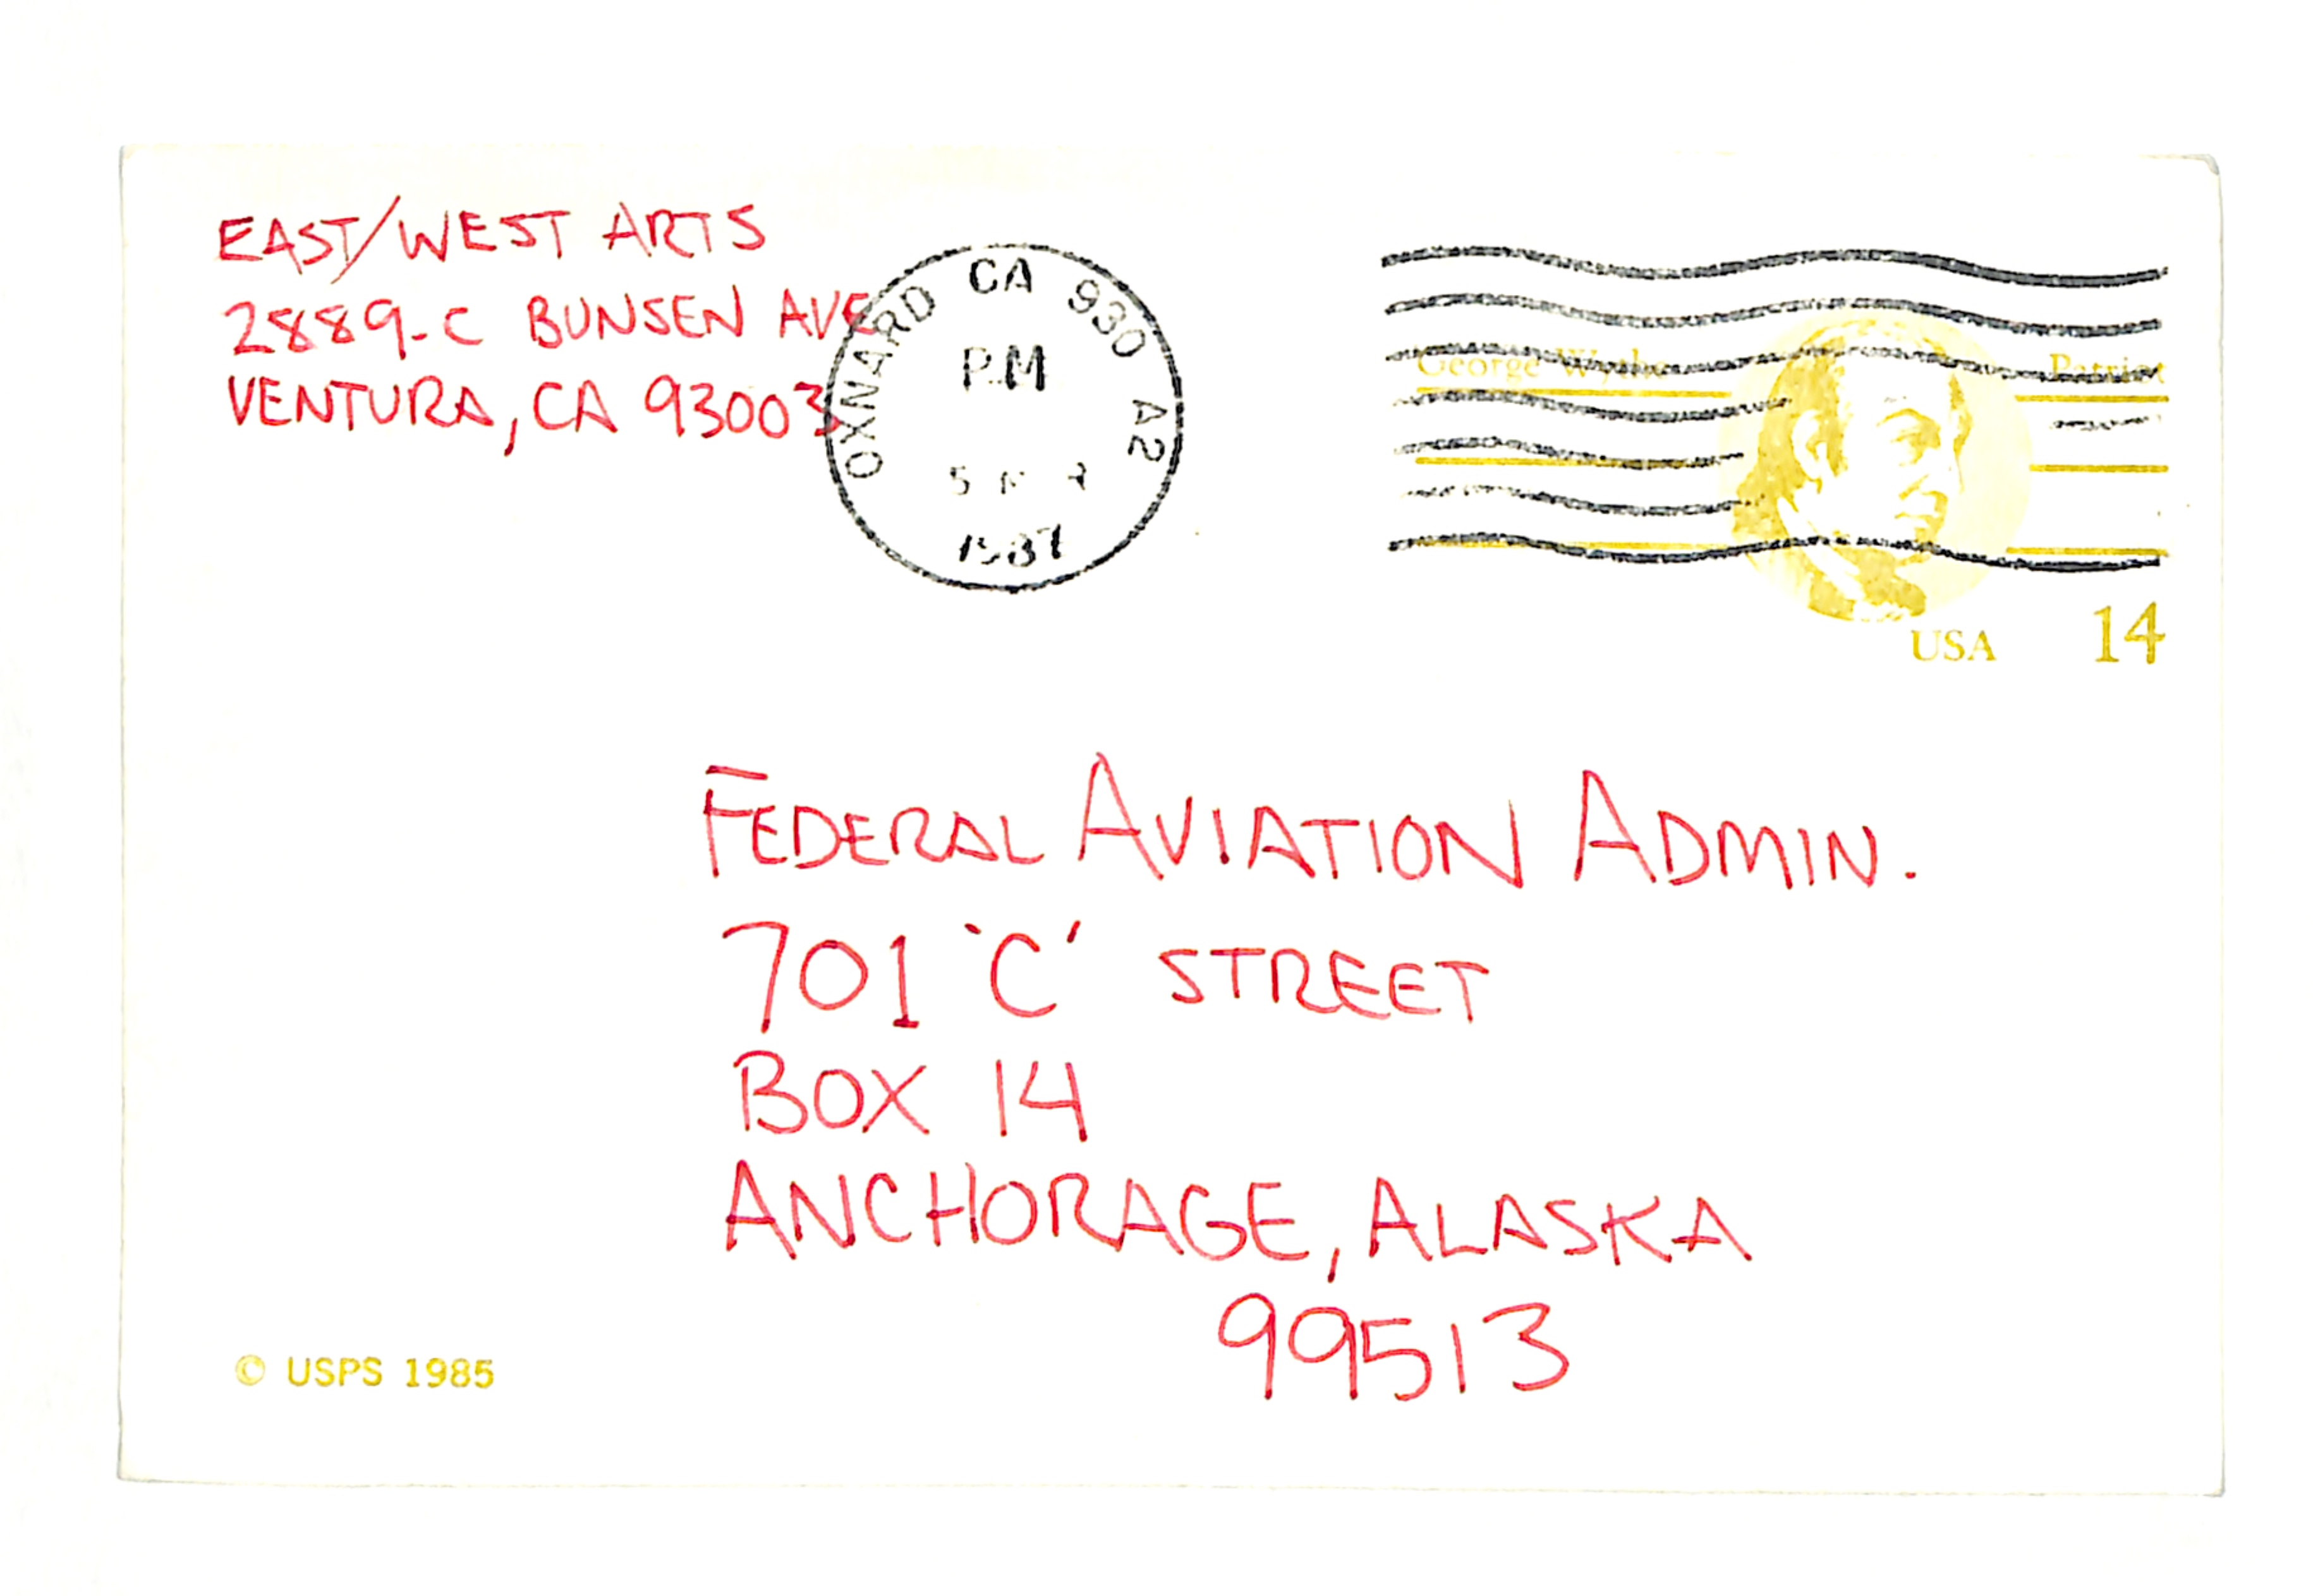 EAST/WEST ARTS
2889-C BUNSEN AVE
VENTURA, CA 93003
OXNARD CA 930 A2
PM
1987
George Wythe Patriot
USA 14
FEDERAL AVIATION ADMIN.
701 'C' STREET
BOX 14
ANCHORAGE, ALASKA
99513
© USPS 1985